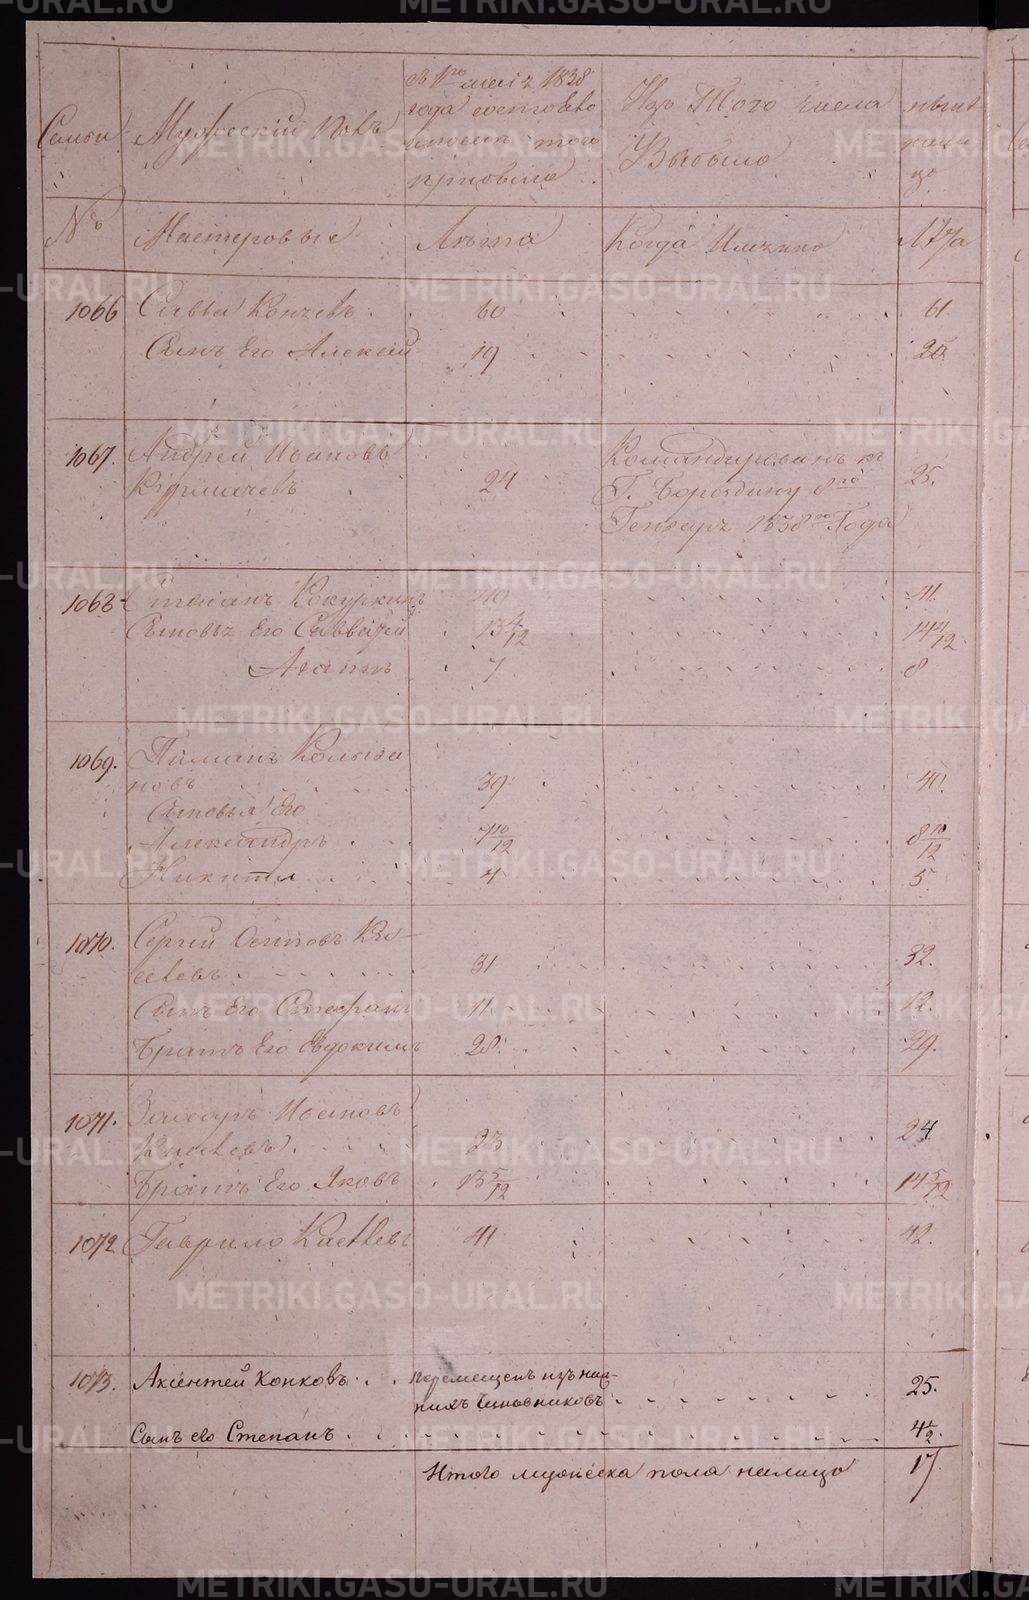 Семьи
Мужеский полъ
1838
года состояло
и после того
прибыло
Изъ того числа
Выбыло
ныне
на ли
цо
№
Мастеровые
Лета
Когда Имянно
Лета
1066 Савва 60 61
Сынъ Его Алексей 19 20.
1067. Андрей Ивановъ
24 25.
Командированъ въ
Г. Бородину 8го
Генваря 1838го Года
1068 Степанъ Кокуркинъ 40 41.
Сыновья Его Савватей 13 4/12 14 4/12
Агапъ 7 8
1069.
новъ 39 40.
Сыновья Его
Александръ 7 10/12 8 10/12
Никита 4 5
1070. Сергей Осиповъ Ки-
селевъ 31 32.
Сынъ Его Стефанъ 11 12.
Братъ Его Евдокимъ 28. 29.
1071. Захаръ Ивановъ
Киселевъ 23 24.
Братъ Его Яковъ 13 5/12 14 5/12
1072 Гаврило Киселевъ 41 42.
1073. Аксентей Конковъ перемещенъ изъ ниж-
нихъ чиновниковъ 25.
Сынъ его Степанъ 4 1/2.
Итого мужеска пола налицо 17
METRIKI.GASO-URAL.RU